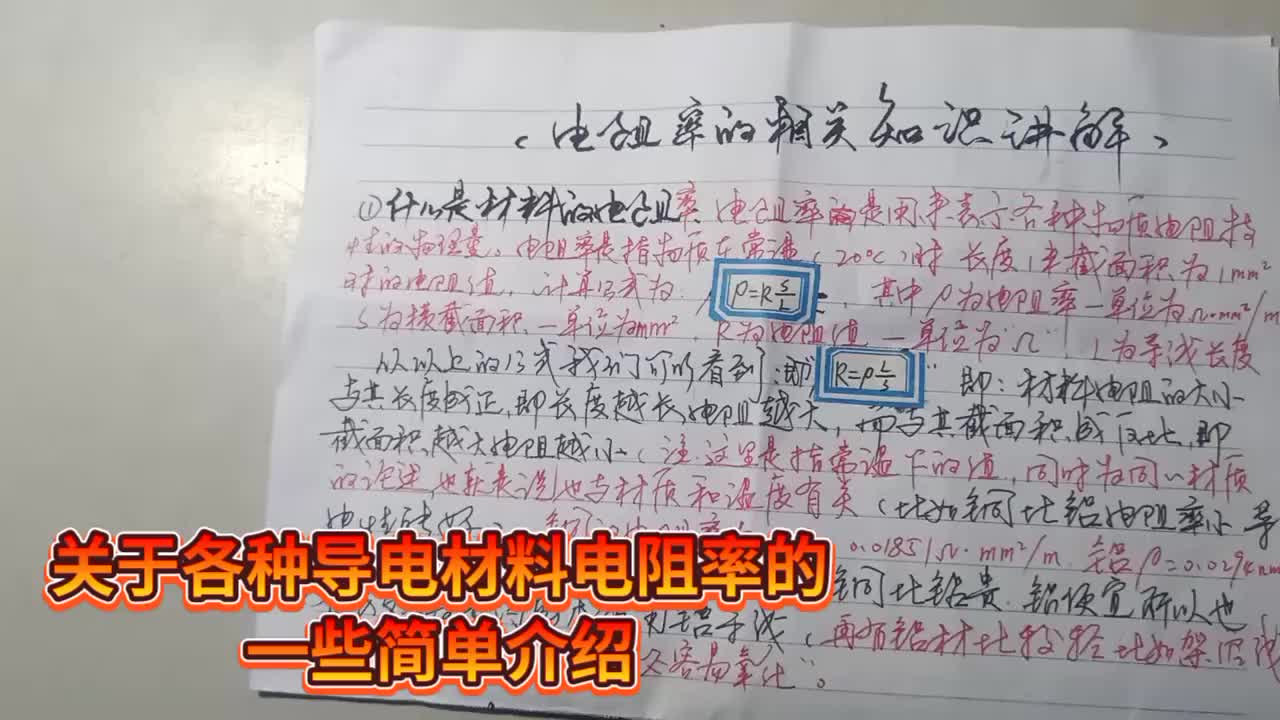 （电阻率的相关知识讲解）
①什么是材料的电阻率 电阻率的是用来表示各种物质电阻特
性的物理量。电阻率是指物质在常温（20℃）时 长度1米截面积为1mm²
时的电阻值，计算公式为：ρ=R S/L，其中ρ为电阻率—单位为Ω·mm²/m
S为横截面积—单位为mm²，R为电阻值—单位为"Ω" L为导线长度
从以上的公式我们可以看到：即 R=ρ L/S " 即：材料电阻的大小
与其长度成正，即长度越长电阻越大，而与其截面积成反比，即
截面积越大电阻越小（注：这里是指常温下的值，同时为同一材质
的论述，也就是说也与材质和温度有关（比如铜比铝电阻率小 导
电性能好
0.01851Ω·mm²/m 铝ρ=0.0294
铜比铝贵 铝便宜所以也
用铝导线（再有铝材比较轻 比如架空线
容易氧化"。
关于各种导电材料电阻率的
一些简单介绍